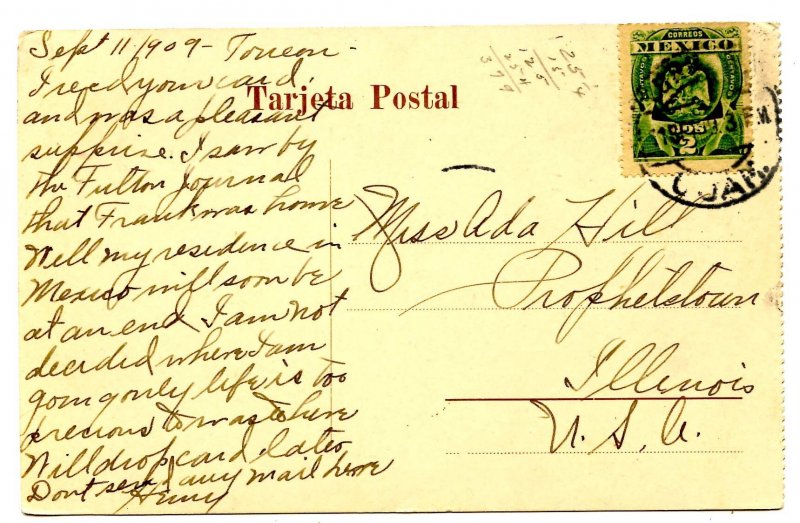 Sept 11/1909 - Torreon -
I recd your card,
and was a pleasant
supprise. I saw by
the Fulton Journal
that Frank was home
Well my residence in
Mexico will soon be
at an end I am not
decided where I am
going only life is too
precious to waste here
Will drop card later
Dont send any mail here
Henry
Tarjeta Postal
Miss Ada Hill
Prophetstown
Illinois
U. S. A.
CORREOS
MEXICO
CENTAVOS
CENTAVOS
DOS
2
COAH.